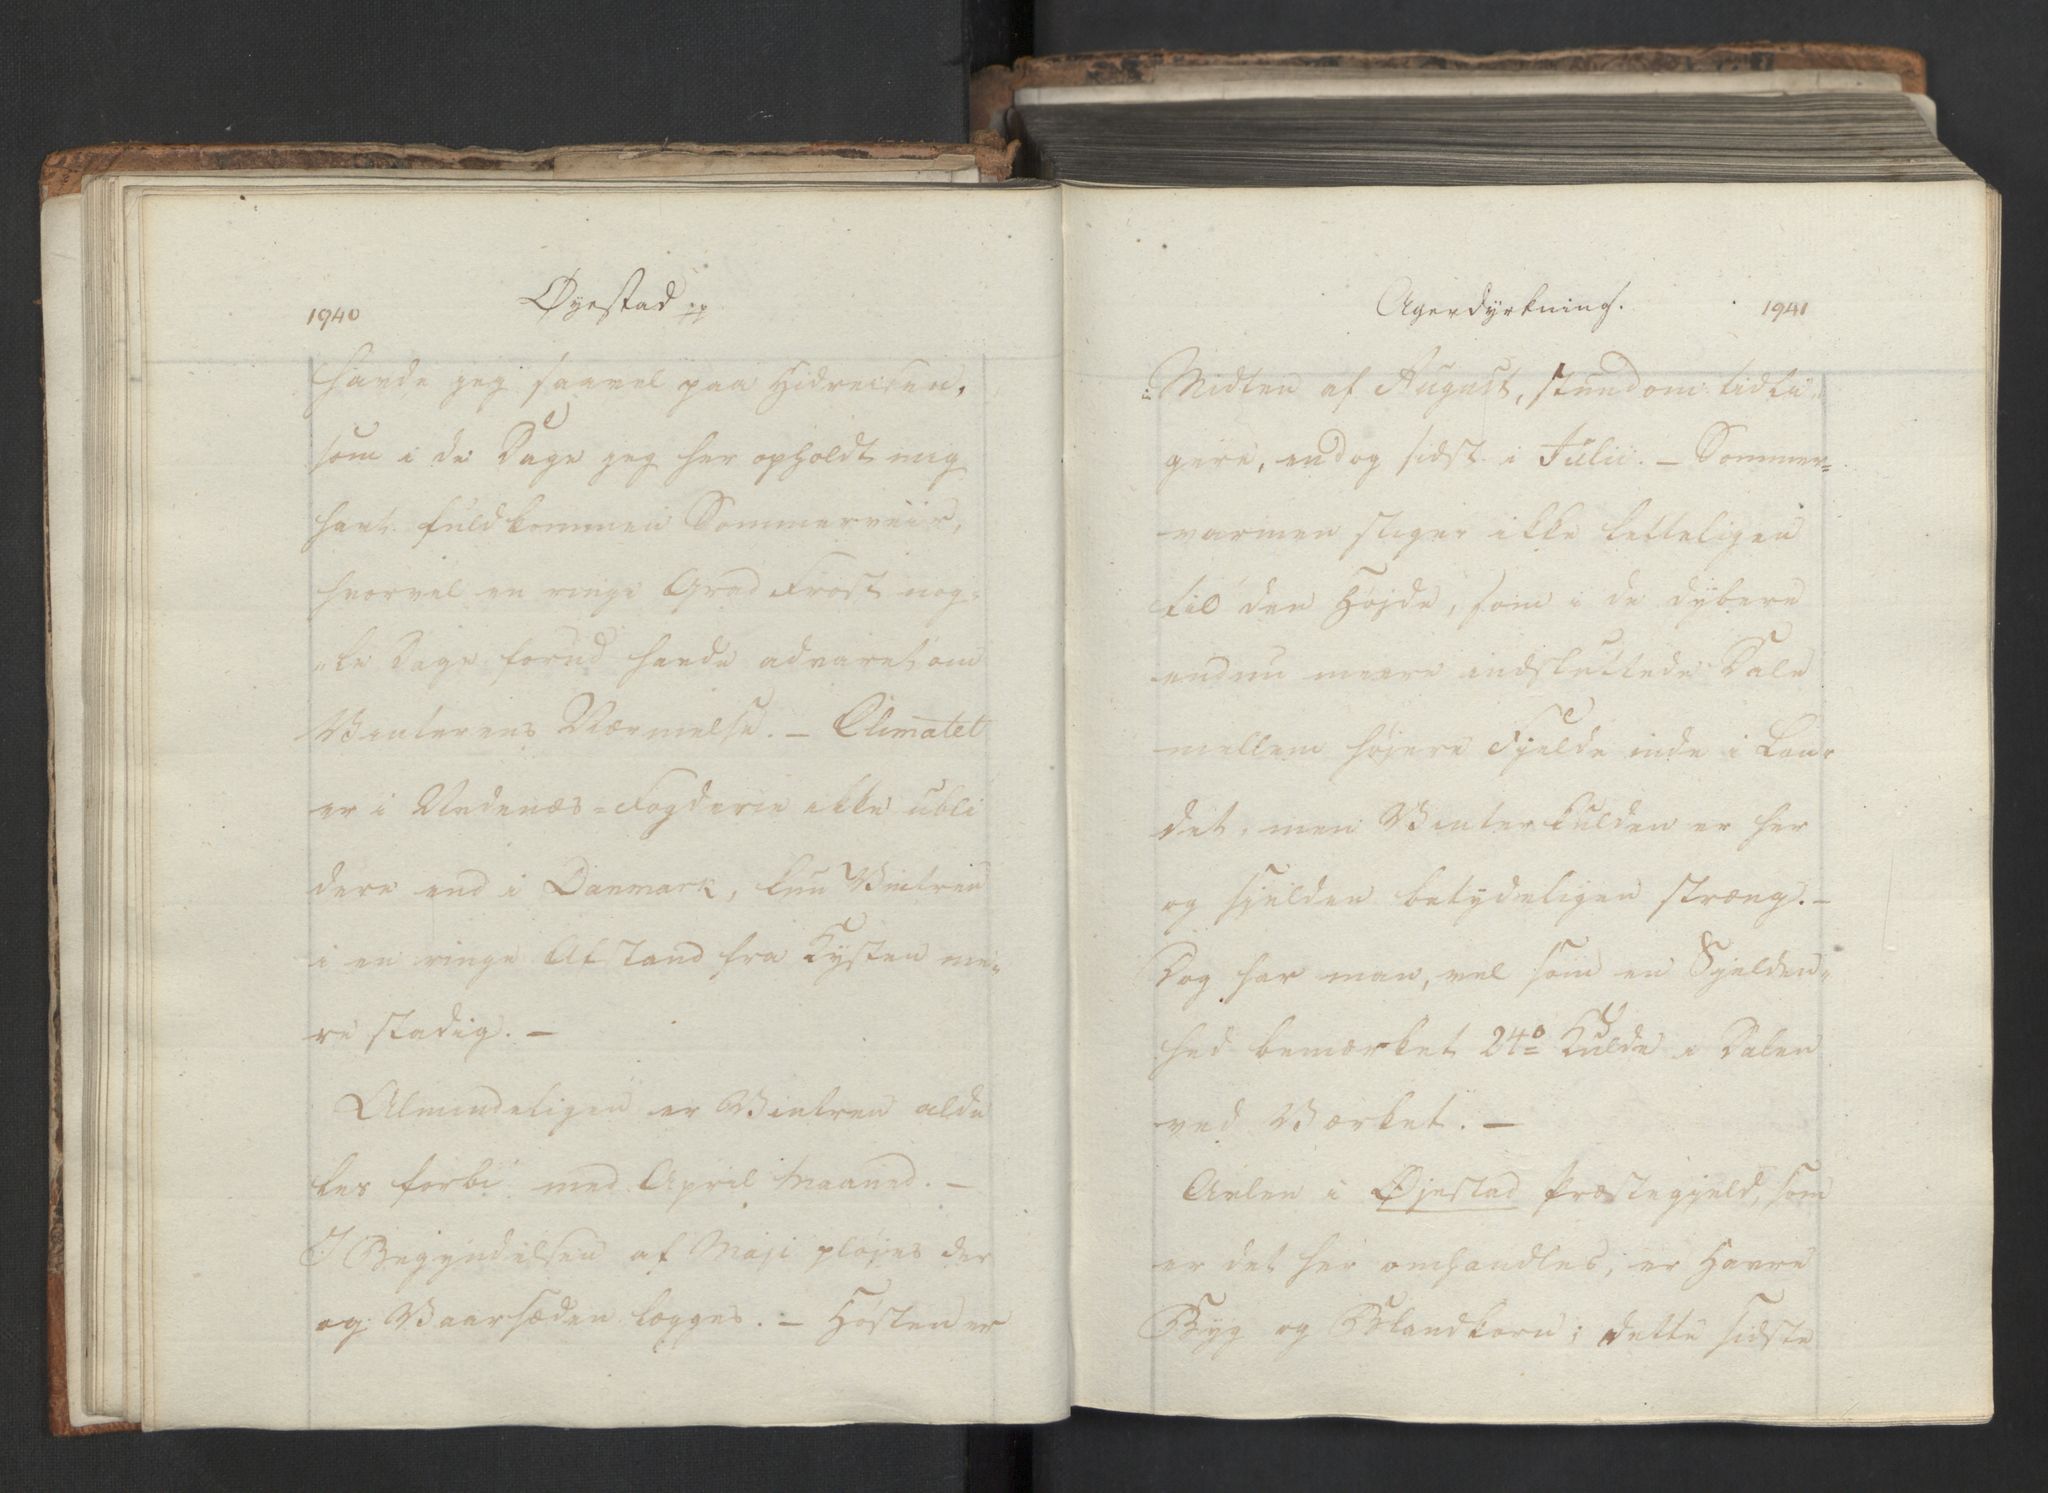 1940
Øyestad pp
havde jeg saavel paa Hidreisen,
som i de Dage jeg her opholdt mig
havt fuldkommen Sommerveir,
hvorvel en ringe Grad Frost nog-
"le Dage forud havde advaret om
Vinterens Nærmelse. — Climatet
er i Nedenæs-Fogderie ikke ubli
dere end i Danmark, kun Vintren
i en ringe Afstand fra Kysten me-
re stadig. —
Almindeligen er Vintren alde
les forbi med April Maaned. —
I Begyndelsen af Maji pløjes der
og Vaarsæden lægges. — Høsten er
Agerdyrkning.
1941
i Midten af August, stundom tidli-
gere, endog sidst i Julii. — Sommer-
varmen stiger ikke letteligen
til den Højde, som i de dybere
endnu meere indsluttede Dale
mellem højere Fjelde inde i Lan-
det, men Vinterkulden er her
og sjelden betydeligen stræng. —
Dog har man, vel som en Sjelden-
hed bemærket 24° Kulde i Dalen
ved Værket. —
Avlen i Øjestad Præstegjeld, som
er det her omhandles, er Havre
Byg og Blandkorn; dette sidste